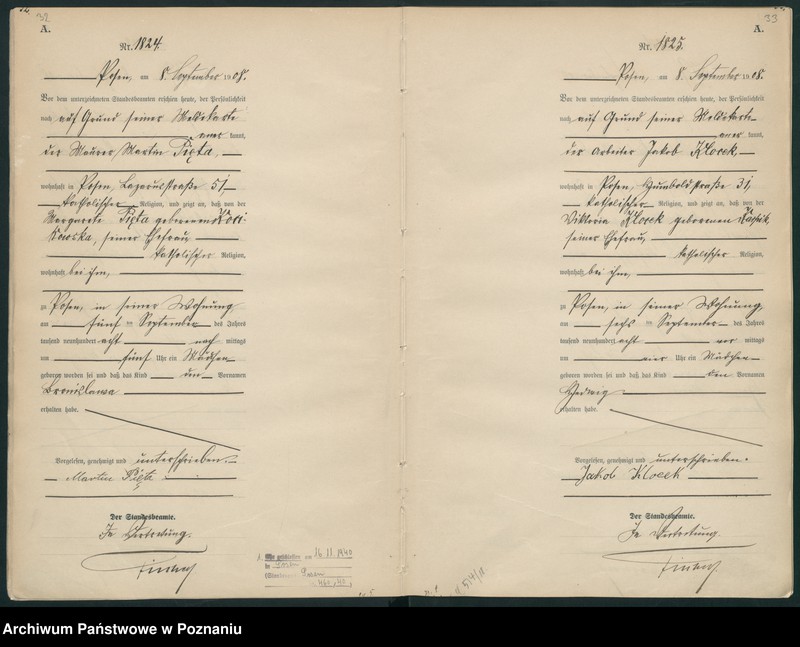 32
A.
Nr. 1824.
Posen, am 8. September 1908.
Vor dem unterzeichneten Standesbeamten erschien heute, der Persönlichkeit
nach auf Grund seiner Meldekarte
aner kannt,
der Maurer Martin Pięta,
wohnhaft in Posen, Lazarusstraße 51,
katholischer Religion, und zeigt an, daß von der
Margarete Pięta geborenen
seiner Ehefrau
katholischer Religion,
wohnhaft bei ihm,
zu Posen, in seiner Wohnung
am fünf ten September des Jahres
tausend neunhundert acht nach mittags
um fünf Uhr ein Mädchen
geboren worden sei und daß das Kind den Vornamen
Bronislawa
erhalten habe.
Vorgelesen, genehmigt und unterschrieben.
Martin Pięta
Der Standesbeamte.
In Vertretung.
16 11 1940
Posen
33
A.
Nr. 1825.
Posen, am 8. September 1908.
Vor dem unterzeichneten Standesbeamten erschien heute, der Persönlichkeit
nach auf Grund seiner Meldekarte
aner kannt,
der Arbeiter Jakob Klocek,
wohnhaft in Posen, Humboldstraße 31,
katholischer Religion, und zeigt an, daß von der
Viktoria Klocek geborenen
seiner Ehefrau,
katholischer Religion,
wohnhaft bei ihm,
zu Posen, in seiner Wohnung,
am sechs ten September des Jahres
tausend neunhundert acht vor mittags
um vier Uhr ein Mädchen
geboren worden sei und daß das Kind den Vornamen
Hedwig
erhalten habe.
Vorgelesen, genehmigt und unterschrieben.
Jakob Klocek
Der Standesbeamte.
In Vertretung.
Archiwum Państwowe w Poznaniu